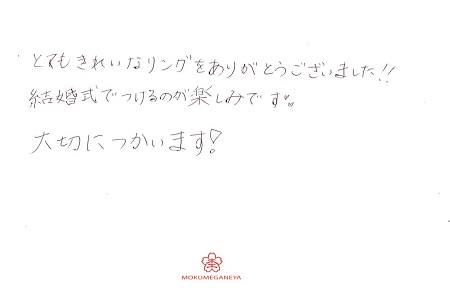 とてもきれいなリングをありがとうございました!!
結婚式でつけるのが楽しみです♡
大切につかいます!
MOKUMEGANEYA